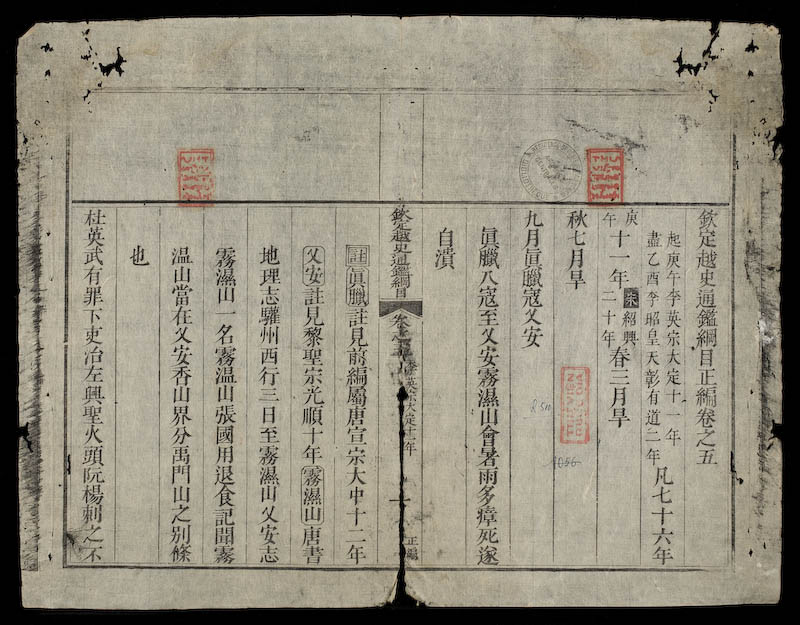 欽定越史通鑑綱目正編卷之五
起庚午李英宗大定十一年
盡乙酉李昭皇天彰有道二年
凡七十六年
庚午
十一年
宋紹興二十年
春三月旱
秋七月旱
九月眞臘寇乂安
眞臘入寇至乂安霧濕山會暑雨多瘴死遂
自潰
欽定越史通鑑綱目
卷之五
李英宗大定十一年
一
正編
註眞臘註見前編屬唐宣宗大中十二年
乂安註見黎聖宗光順十年霧濕山唐書
地理志驩州西行三日至霧濕山乂安志
霧濕山一名霧温山張國用退食記聞霧
温山當在乂安香山界分禹門山之别條
也
杜英武有罪下吏冶左興聖火頭阮楊刺之不
R.511